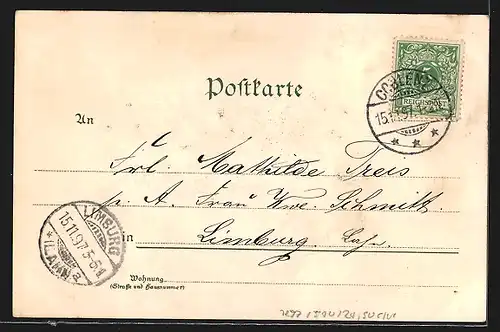 Postkarte
COBLENZ
REICHSPOST
15.11.97
An
Frl. Mathilde Treis
p. A. Frau Wwe. Schmitt.
in Limburg Lahn.
LIMBURG
15.11.97 5-6N
* (LAHN) a
Wohnung
(Straße und Hausnummer)